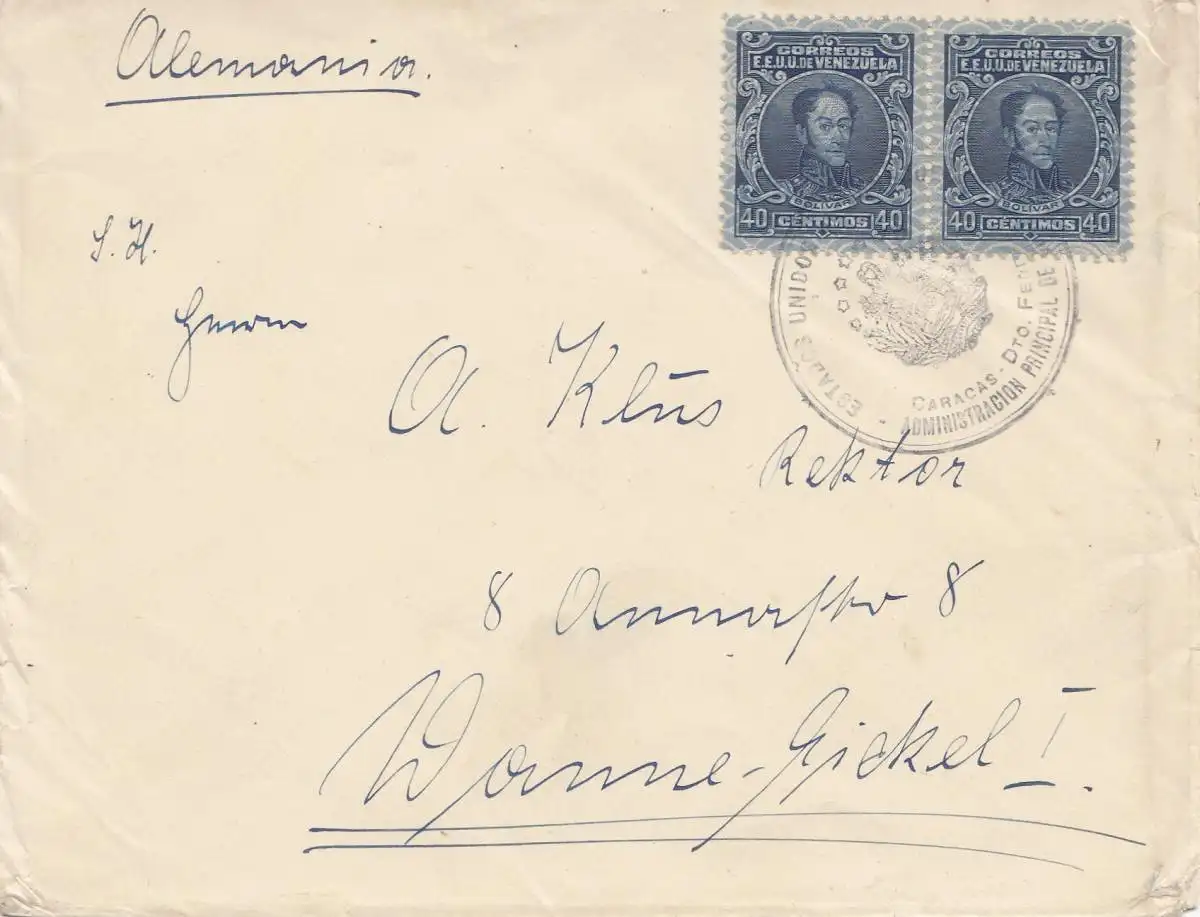 Alemania.
CORREOS
E.E.U.U. DE VENEZUELA
BOLÍVAR
40 CÉNTIMOS 40
CORREOS
E.E.U.U. DE VENEZUELA
BOLÍVAR
40 CÉNTIMOS 40
ESTADOS UNIDOS
CARACAS - DTO. FED
ADMINISTRACION PRINCIPAL DE
S. H.
Herrn
A. Klūs
Rektor
8 Annastr 8
Wanne-Eickel I.